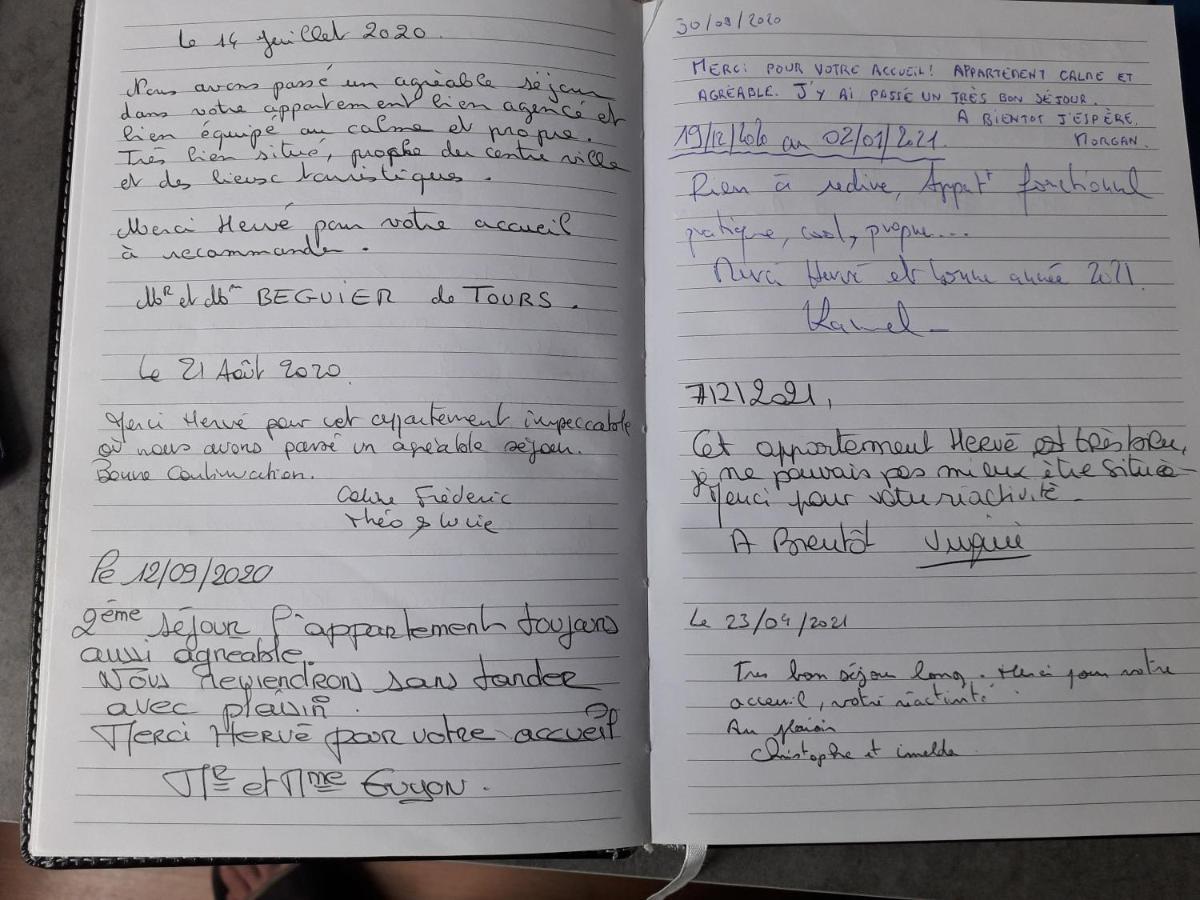 Le 14 Juillet 2020.
Nous avons passé un agréable séjour
dans votre appartement bien agencé et
bien équipé au calme et propre.
Très bien situé, proche du centre ville
et des lieux touristiques.
Merci Hervé pour votre accueil
à recommander.
Mr et Mme BEGUIER de TOURS.
Le 21 Août 2020.
Merci Hervé pour cet appartement impeccable
où nous avons passé un agréable séjour.
Bonne Continuation.
Céline Fréderic
Théo & Lucie
Le 12/09/2020
2ème séjour l'appartement toujours
aussi agréable.
Nous reviendrons sans tarder
avec plaisir.
Merci Hervé pour votre accueil
Mr et Mme Guyon.
30/09/2020
MERCI POUR VOTRE ACCUEIL! APPARTEMENT CALME ET
AGRÉABLE. J'Y AI PASSÉ UN TRÈS BON SÉJOUR.
A BIENTOT J'ESPÈRE.
MORGAN.
19/12/2020 au 02/01/2021.
Rien à redire, Appart fonctionnel
pratique, cool, propre...
Merci Hervé et bonne année 2021.
Kamel
7/12/2021,
Cet appartement Hervé est très bien,
je ne pouvais pas mieux être située
Merci pour votre réactivité.
A Bientôt Virginie
Le 23/04/2021
Tres bon séjour long. Merci pour votre
acceuil, votre réactivité.
Au plaisir
Christophe et imelda